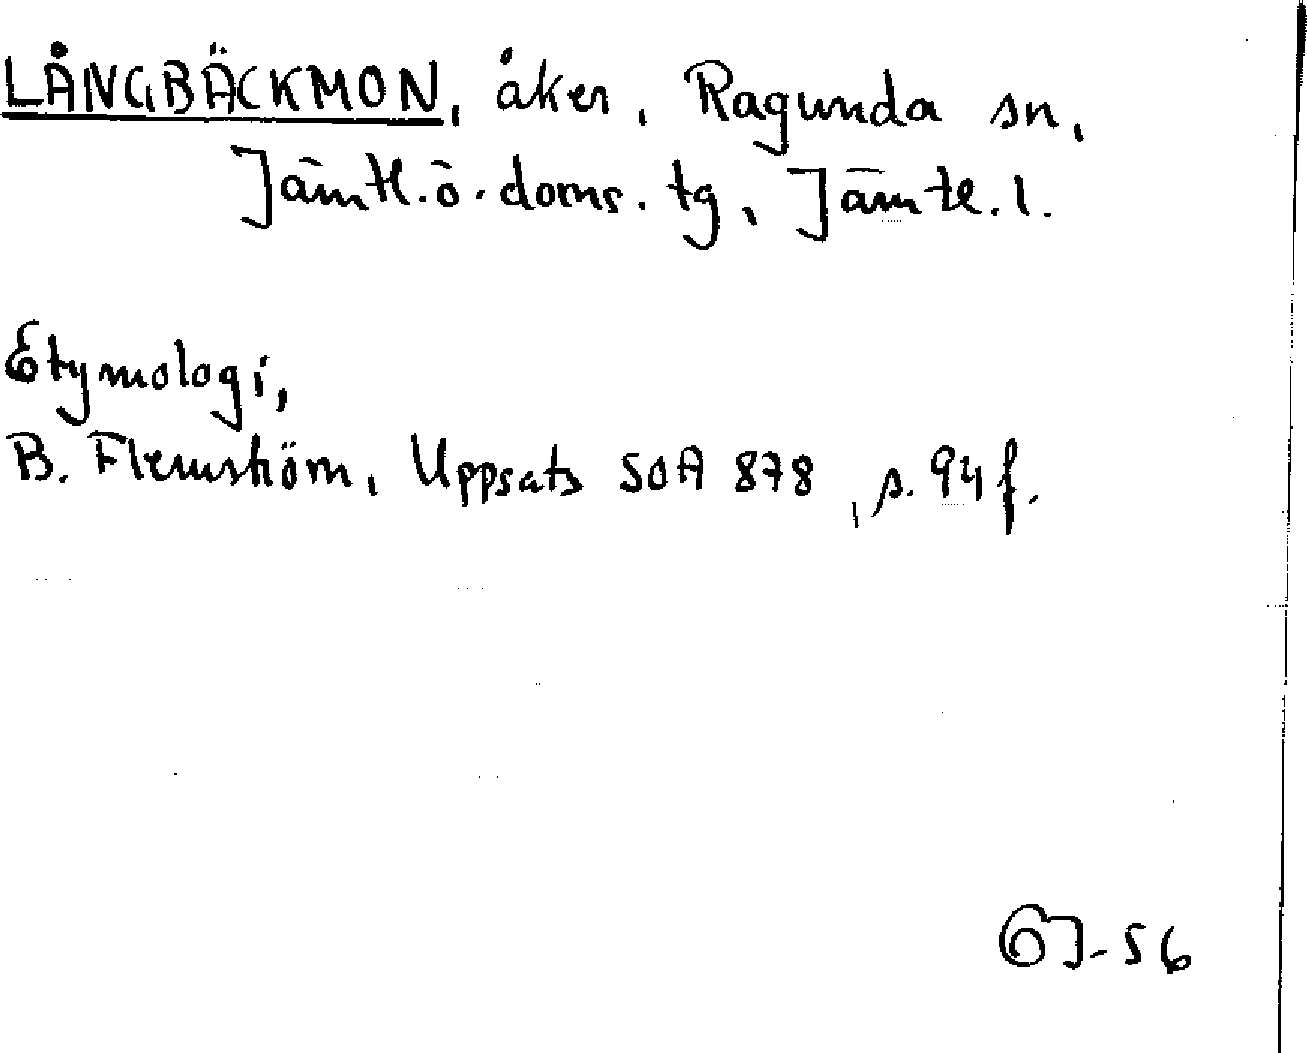 LÅNGBÄCKMON, åker, Ragunda sn,
Jämtl.ö.doms.tg, Jämtl.l.
Etymologi,
B. Flemström, Uppsats SOA 878, s. 94 f.
GJ-56